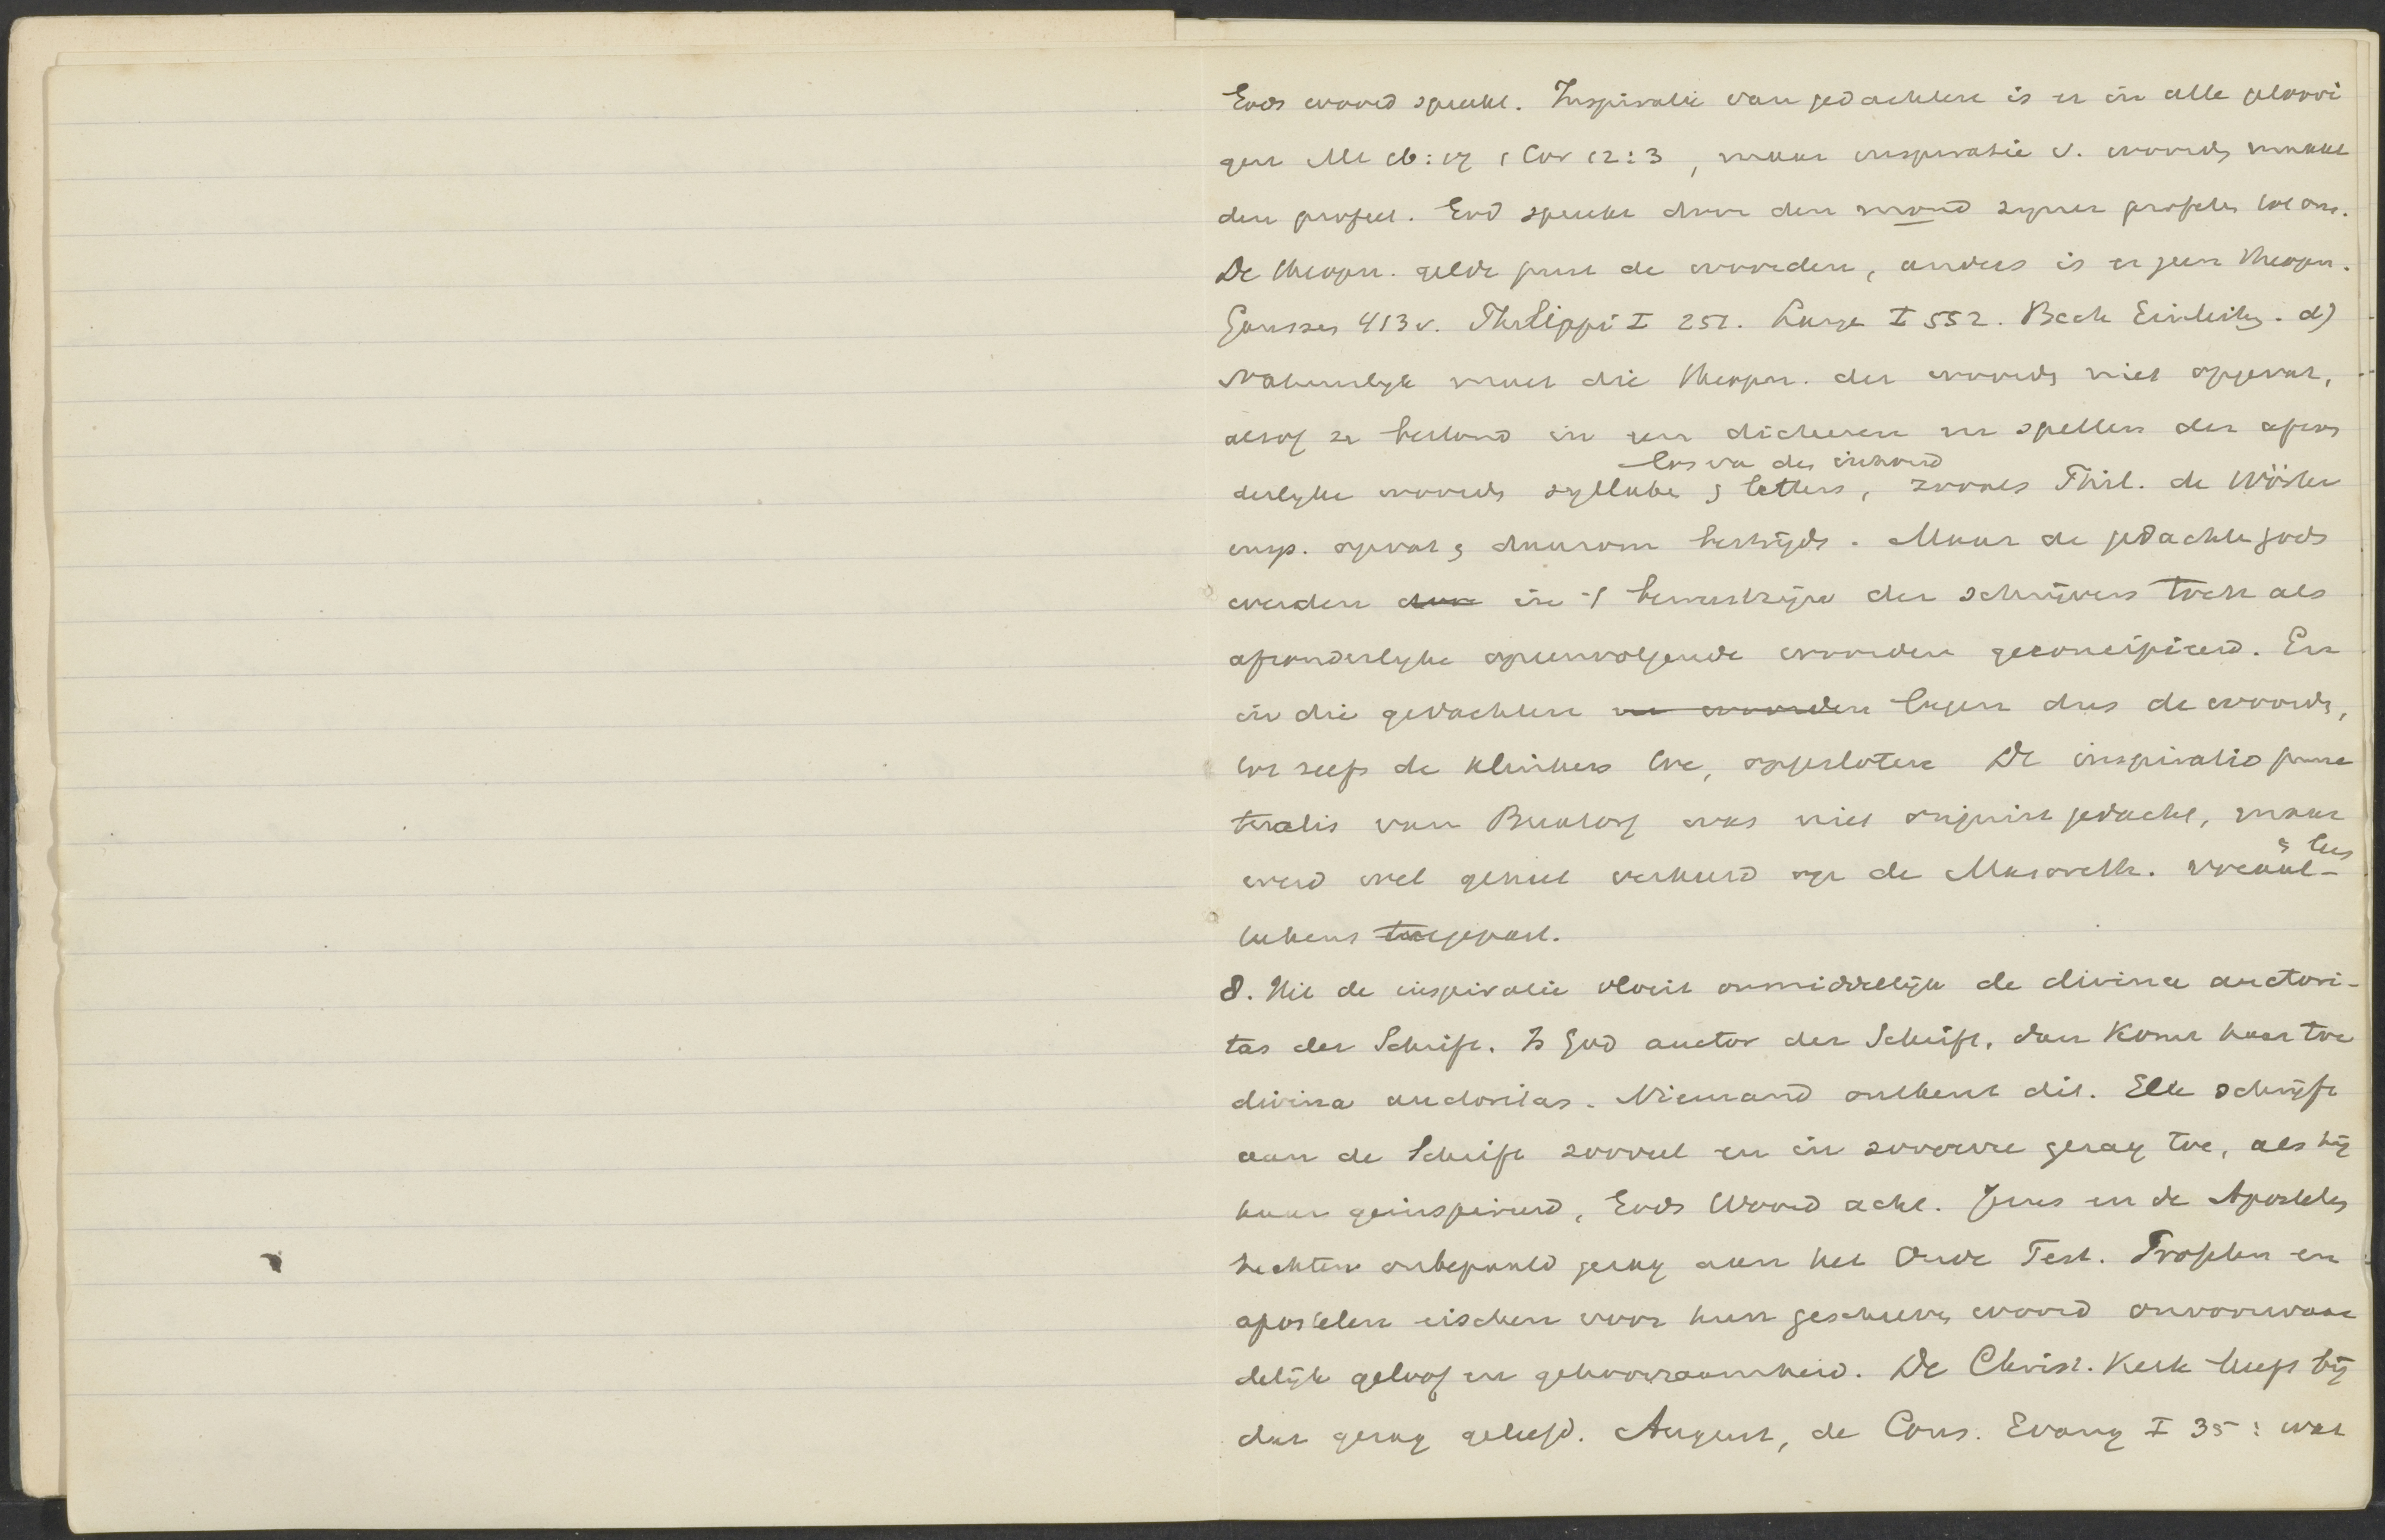 Gods woord spreekt. Inspiratie van gedachten is er in alle geloovi
gen Mt 16:17 1 Cor 12:3, maar inspiratie v. woorden maakt
den profeet. God spreekt door den mond zijner profeten tot ons.
De theopn. geldt juist de woorden, anders is er geen theopn.
Gaussen 413v. Philippi I 251. Lange I 552. Beck Einleitg. d)
Natuurlijk moet die theopn. der woorden niet opgevat,
alsof ze bestond in een dicteeren en spellen der afzon
los van den inhoud
derlijke woorden syllaben & letters, zooals Phil. de Wörter
insp. opvat & daarom bestrijdt. Maar de gedachten Gods
werden in 't bewustzijn der schrijvers toch als
afzonderlijke opeenvolgende woorden geconcipieerd. En
in die gedachten en woorden lagen dus de woorden,
tot zelfs de klinkers toe, opgesloten De inspiratio punc
turalis van Buxtorf was niet onjuist gedacht, maar
& lees
werd wel geheel verkeerd op de Masoreth. vocaal-
tekens toegepast.
8. Uit de inspiratie vloeit onmiddellijk de divina auctori-
tas der Schrift. Is God auctor der Schrift, dan komt haar toe
divina auctoritas. Niemand ontkent dit. Elk schrijft
aan de Schrift zooveel en in zooverre gezag toe, als hij
haar geinspireerd, Gods Woord acht. Jezus en de Apostelen
hechten onbepaald gezag aan het Oude Test. Profeten en
apostelen eischen voor hun geschreven woord onvoorwaar
delijk geloof en gehoorzaamheid. De Christ. Kerk heeft bij
dat gezag geleefd. August, de Cons. Evang I 35: wat